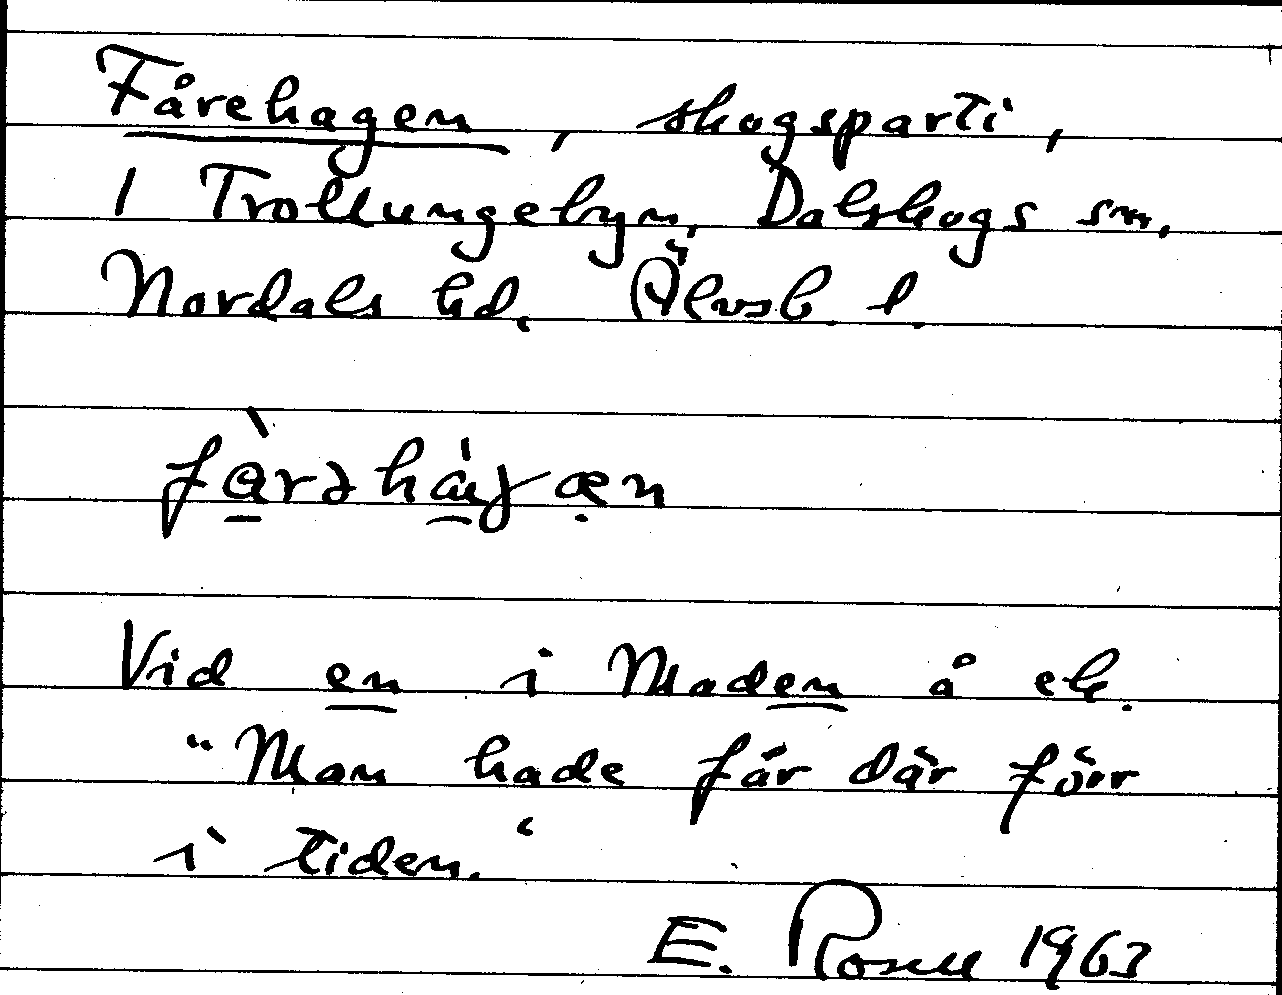 Fårehagen, skogsparti,
I Trollungebyn, Dalskogs sn.
Nordals hd. Älvsb. l.
Vid en i Maden å ek.
"Man hade får där förr
i tiden."
E. Rosell 1963